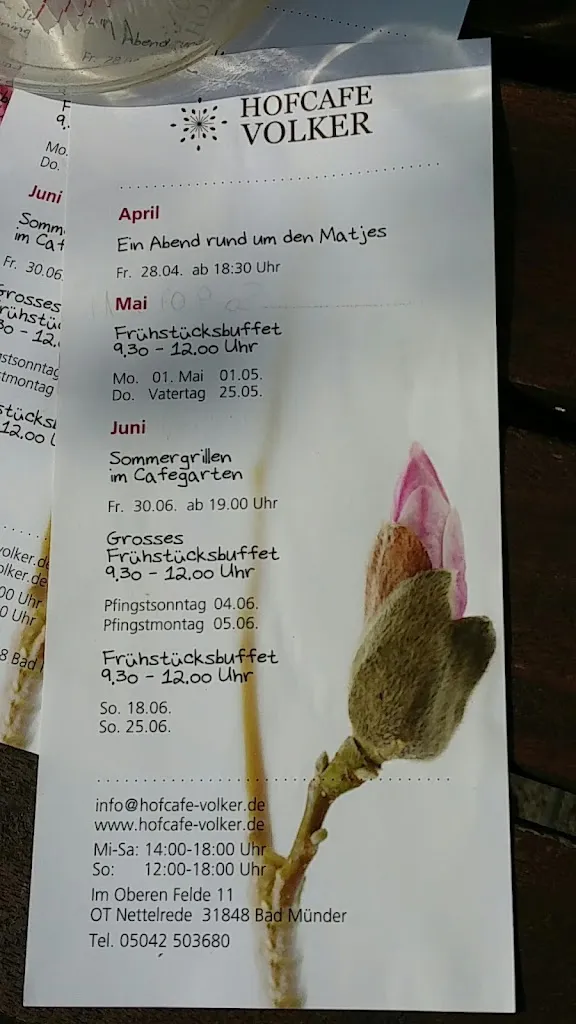 HOFCAFE
VOLKER
April
Ein Abend rund um den Matjes
Fr. 28.04. ab 18:30 Uhr
Mai
Frühstücksbuffet
9,30 - 12.00 Uhr
Mo. 01. Mai 01.05.
Do. Vatertag 25.05.
Juni
Sommergrillen
im Cafegarten
Fr. 30.06. ab 19.00 Uhr
Grosses
Frühstücksbuffet
9,30 - 12.00 Uhr
Pfingstsonntag 04.06.
Pfingstmontag 05.06.
Frühstücksbuffet
9,30 - 12.00 Uhr
So. 18.06.
So. 25.06.
info@hofcafe-volker.de
www.hofcafe-volker.de
Mi-Sa: 14:00-18:00 Uhr
So: 12:00-18:00 Uhr
Im Oberen Felde 11
OT Nettelrede 31848 Bad Münder
Tel. 05042 503680
Abend
Mo.
Do.
Juni
im
Fr. 30.06.